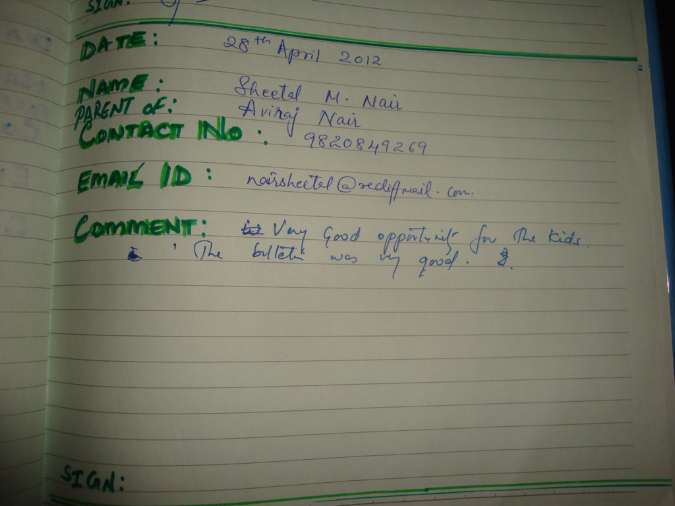 SIGN:
DATE: 28th April 2012
NAME: Sheetal M. Nair
PARENT OF: Aviraj Nair
CONTACT NO: 9820849269
EMAIL ID: nairsheetal@rediffmail.com
COMMENT: Very Good opportunity for the kids.
The bulletin was very good.
SIGN: